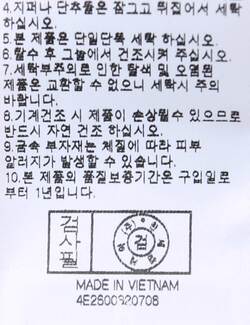 4.지퍼나 단추들은 잠그고 뒤집어서 세탁
하십시오.
5.본 제품은 단일단독 세탁 하십시오.
6.탈수 후 그늘에서 건조시켜 주십시오.
7.세탁부주의로 인한 탈색 및 오염된
제품은 교환할 수 없으니 세탁시 주의
바랍니다.
8.기계건조 시 제품이 손상될수 있으므로
반드시 자연 건조 하십시오.
9.금속 부자재는 체질에 따라 피부
알러지가 발생할 수 있습니다.
10.본 제품의 품질보증기간은 구입일로
부터 1년입니다.
검사필
검
MADE IN VIETNAM
4E2600320708